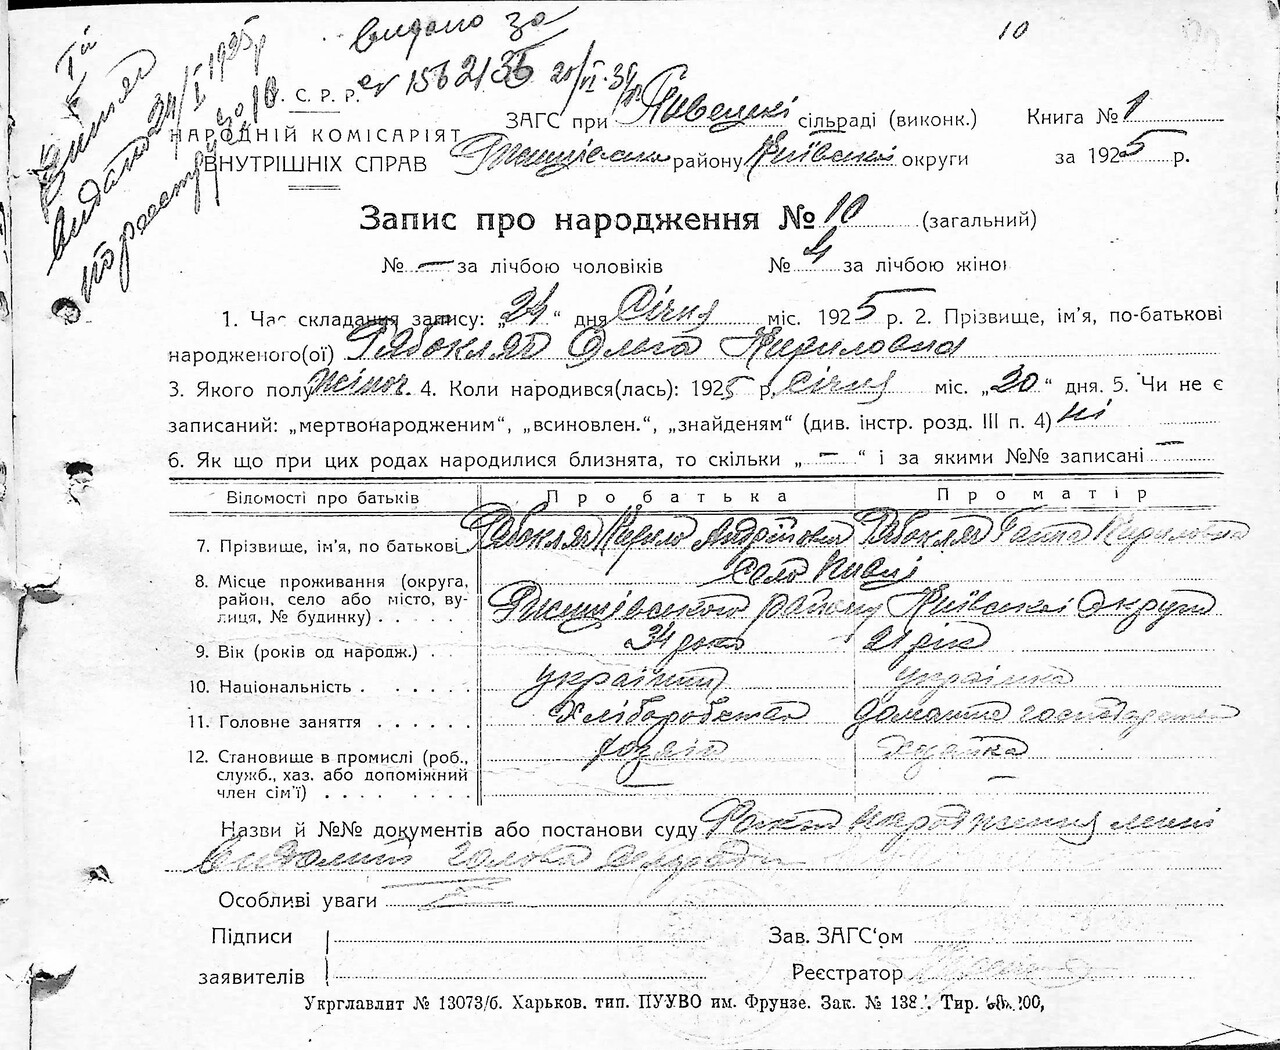 10
видано за
№ 156213
Витяг
видано 24/I 1925 р
по реєстру за № 10
С. Р. Р.
НАРОДНІЙ КОМІСАРІЯТ
ВНУТРІШНІХ СПРАВ
ЗАГС при Пивецькі сільраді (виконк.) Книга № 1
Ржищівськ району Київські округи за 1925 р.
Запис про народження № 10 (загальний)
№ – за лічбою чоловіків № 4 за лічбою жіно
1. Час складання запису: „24“ дня Січня міс. 1925 р. 2. Прізвище, ім'я, по-батькові
народженого(ої) Рябокляч Ольга Кириловна
3. Якого полу жіноч. 4. Коли народився(лась): 1925 р. січня міс. „20“ дня. 5. Чи не є
записаний: „мертвонародженим“, „всиновлен.“, „знайденям“ (див. інстр. розд. III п. 4) ні
6. Як що при цих родах народилися близнята, то скільки „ – “ і за якими №№ записані –
Відомості про батьків Про батька Про матір
7. Прізвище, ім'я, по батькові Рябокляч Кирило Андрійович Рябокляч Ганна Кириловна
8. Місце проживання (округа, село Півці
район, село або місто, ву- Ржищівського району Київські Округи
лиця, № будинку)
9. Вік (років од народж.) 34 роки 21 рік
10. Національність українець Українка
11. Головне заняття Хліборобство домашнє господарство
12. Становище в промислі (роб., хозяїн хазяйка
служб., хаз. або допоміжний
член сім'ї) – –
Назви й №№ документів або постанови суду народження мені
голова сільради
Особливі уваги
Підписи Зав. ЗАГС‘ом
заявителів Реєстратор
Укрглавлит № 13073/б. Харьков. тип. ПУУВО им. Фрунзе. Зак. № 138 Тир. 00,